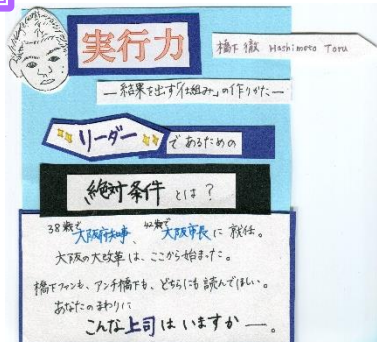 実行力
橋下 徹 Hashimoto Toru
―結果を出す「仕組み」の作りかた―
リーダーであるための
絶対条件とは?
38歳で大阪府知事、42歳で大阪市長に就任。
大阪の大改革は、ここから始まった。
橋下ファンも、アンチ橋下も、どちらにも読んでほしい。
あなたのまわりに
こんな上司はいますか―。